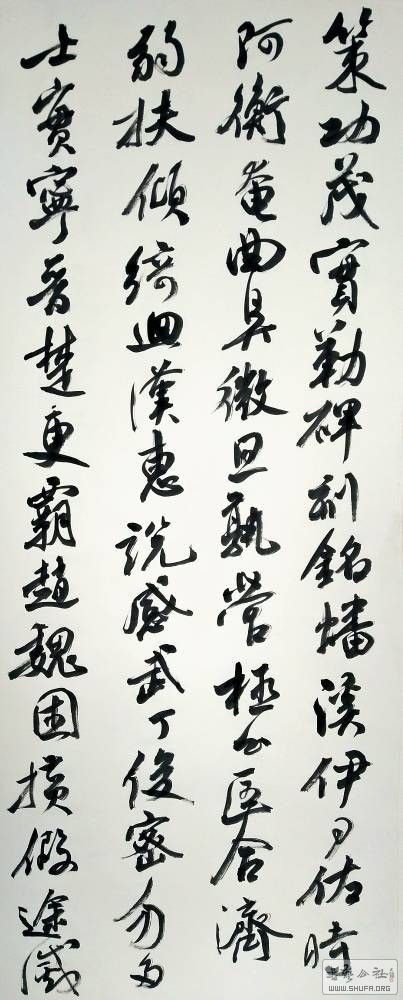 策功茂實勒碑刻銘磻溪伊尹佐時
阿衡奄曲阜微旦孰營桓公匡合濟
弱扶傾綺迴漢惠說感武丁俊密勿多
士實寧晉楚更霸趙魏困橫假途滅
WWW.SHUFA.ORG